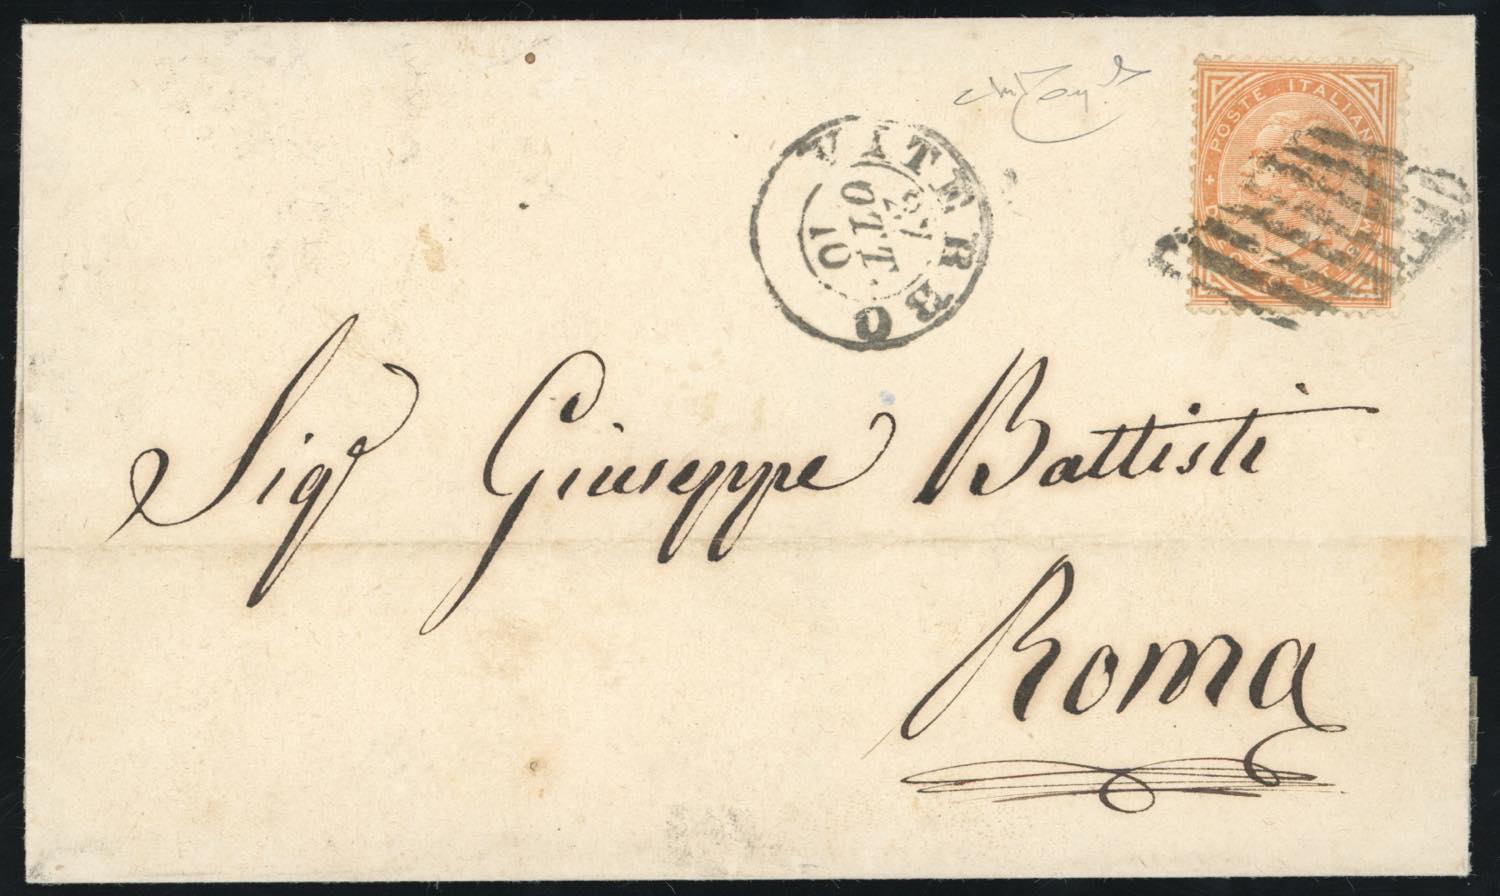 VITERBO
10
OTT
POSTE ITALIAN
Sigr Giuseppe Battisti
Roma